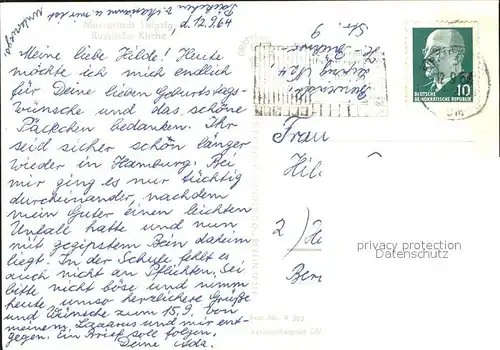 Päckchen v. Marianne u. mir ist
unterwegs
Messestadt Leipzig
Russische Kirche
d. 12.9.64
Meine liebe Hilde! Heute
möchte ich mich endlich
für Deine lieben Geburtstags-
wünsche und das schöne
Päckchen bedanken. Ihr
seid sicher schon länger
wieder in Hamburg. Bei
mir ging es nur tüchtig
durcheinander, nachdem
mein Guter einen leichten
Unfall hatte und nun
mit gegipstem Bein daheim
liegt. In der Schule fehlt es
auch nicht an Pflichten. Sei
bitte nicht böse und nimm
heute umso herzlichere Grüße
und Wünsche zum 15.9. von
meinem Lazarus und mir ent-
gegen. Ein Brief soll folgen.
Deine
Leipzig N24
Str. 9
DEUTSCHE
DEMOKRATISCHE REPUBLIK
10
Frau
Hil
2)
privacy protection
watermark
Ber